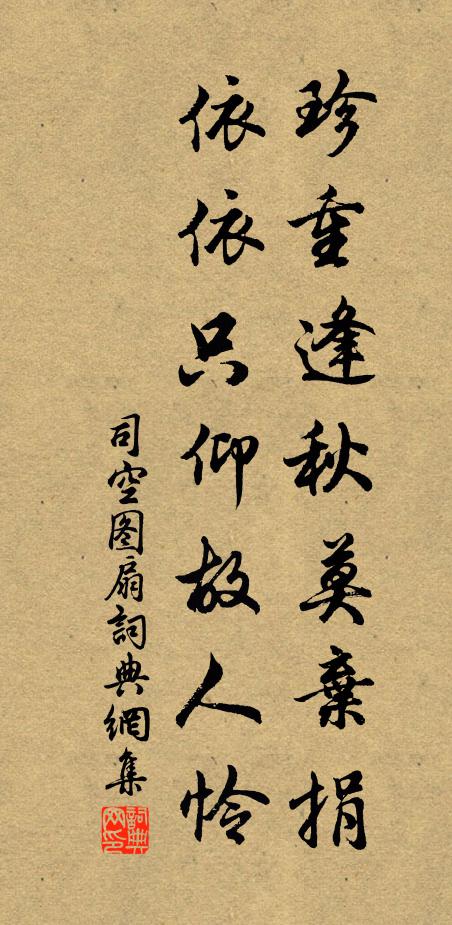 珍重逢秋莫棄捐
依依只仰故人怜
司空图扇詞典網集
詞典网印